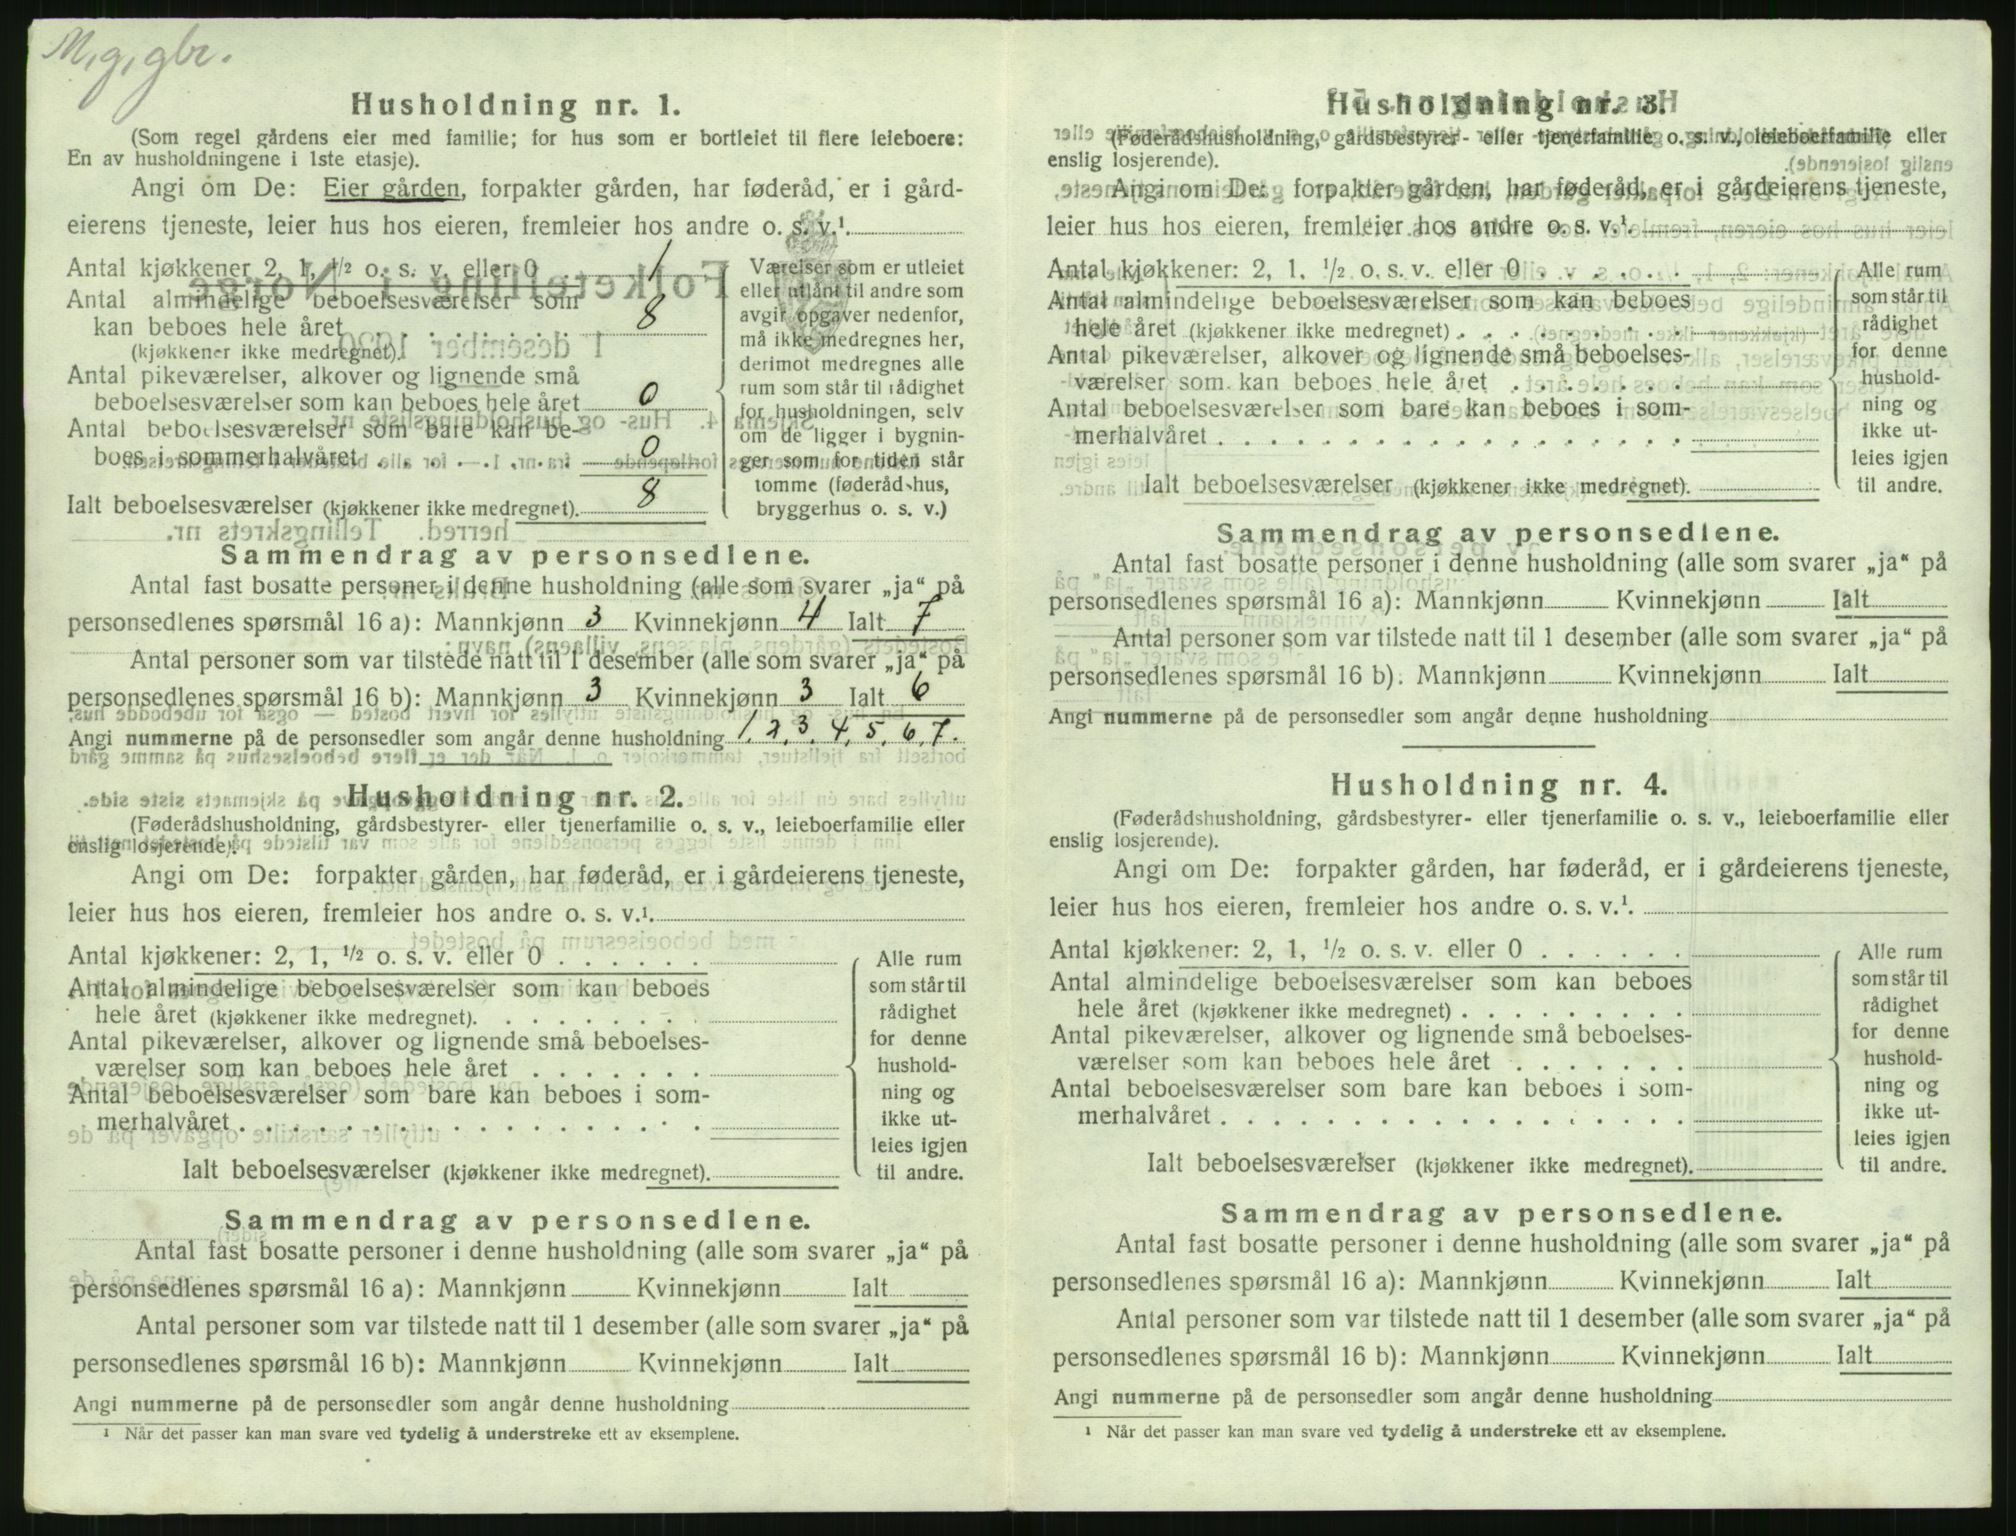 M, g, gbr.
Husholdning nr. 1.
(Som regel gårdens eier med familie; for hus som er bortleiet til flere leieboere:
En av husholdningene i 1ste etasje).
Angi om De: Eier gården, forpakter gården, har føderåd, er i gård-
eierens tjeneste, leier hus hos eieren, fremleier hos andre o. s. v.¹.
Antal kjøkkener 2, 1, ½ o. s. v. eller 0 1
Antal almindelige beboelsesværelser som
kan beboes hele året . . . . . . 8
(kjøkkener ikke medregnet).
Antal pikeværelser, alkover og lignende små
beboelsesværelser som kan beboes hele året 0
Antal beboelsesværelser som bare kan be-
boes i sommerhalvåret . . . . . . . 0
Ialt beboelsesværelser (kjøkkener ikke medregnet). 8
Værelser som er utleiet
eller utlånt til andre som
avgir opgaver nedenfor,
må ikke medregnes her,
derimot medregnes alle
rum som står til rådighet
for husholdningen, selv
om de ligger i bygnin-
ger som for tiden står
tomme (føderådshus,
bryggerhus o. s. v.)
Sammendrag av personsedlene.
Antal fast bosatte personer i denne husholdning (alle som svarer „ja“ på
personsedlenes spørsmål 16 a): Mannkjønn 3 Kvinnekjønn 4 Ialt 7
Antal personer som var tilstede natt til 1 desember (alle som svarer „ja“ på
personsedlenes spørsmål 16 b): Mannkjønn 3 Kvinnekjønn 3 Ialt 6
Angi nummerne på de personsedler som angår denne husholdning 1, 2, 3, 4, 5, 6, 7.
Husholdning nr. 2.
(Føderådshusholdning, gårdsbestyrer- eller tjenerfamilie o. s. v., leieboerfamilie eller
enslig losjerende).
Angi om De: forpakter gården, har føderåd, er i gårdeierens tjeneste,
leier hus hos eieren, fremleier hos andre o. s. v.¹.
Antal kjøkkener: 2, 1, ½ o. s. v. eller 0 . . . . . .
Antal almindelige beboelsesværelser som kan beboes
hele året (kjøkkener ikke medregnet). . . . . . . . .
Antal pikeværelser, alkover og lignende små beboelses-
værelser som kan beboes hele året . . . . . . .
Antal beboelsesværelser som bare kan beboes i som-
merhalvåret . . . . . . . . . . . . . . . . .
Ialt beboelsesværelser (kjøkkener ikke medregnet).
Alle rum
som står til
rådighet
for denne
hushold-
ning og
ikke ut-
leies igjen
til andre.
Sammendrag av personsedlene.
Antal fast bosatte personer i denne husholdning (alle som svarer „ja“ på
personsedlenes spørsmål 16 a): Mannkjønn Kvinnekjønn Ialt
Antal personer som var tilstede natt til 1 desember (alle som svarer „ja“ på
personsedlenes spørsmål 16 b): Mannkjønn Kvinnekjønn Ialt
Angi nummerne på de personsedler som angår denne husholdning
¹ Når det passer kan man svare ved tydelig å understreke ett av eksemplene.
Husholdning nr. 3.
(Føderådshusholdning, gårdsbestyrer- eller tjenerfamilie o. s. v., leieboerfamilie eller
enslig losjerende).
Angi om De: forpakter gården, har føderåd, er i gårdeierens tjeneste,
leier hus hos eieren, fremleier hos andre o. s. v.¹.
Antal kjøkkener: 2, 1, ½ o. s. v. eller 0 . . . . . .
Antal almindelige beboelsesværelser som kan beboes
hele året (kjøkkener ikke medregnet) . . . . . . . . .
Antal pikeværelser, alkover og lignende små beboelses-
værelser som kan beboes hele året . . . . . . .
Antal beboelsesværelser som bare kan beboes i som-
merhalvåret . . . . . . . . . . . . . . . . .
Ialt beboelsesværelser (kjøkkener ikke medregnet).
Alle rum
som står til
rådighet
for denne
hushold-
ning og
ikke ut-
leies igjen
til andre.
Sammendrag av personsedlene.
Antal fast bosatte personer i denne husholdning (alle som svarer „ja“ på
personsedlenes spørsmål 16 a): Mannkjønn Kvinnekjønn Ialt
Antal personer som var tilstede natt til 1 desember (alle som svarer „ja“ på
personsedlenes spørsmål 16 b). Mannkjønn Kvinnekjønn Ialt
Angi nummerne på de personsedler som angår denne husholdning
Husholdning nr. 4.
(Føderådshusholdning, gårdsbestyrer- eller tjenerfamilie o. s. v., leieboerfamilie eller
enslig losjerende).
Angi om De: forpakter gården, har føderåd, er i gårdeierens tjeneste,
leier hus hos eieren, fremleier hos andre o. s. v.¹.
Antal kjøkkener: 2, 1, ½ o. s. v. eller 0 . . . . . .
Antal almindelige beboelsesværelser som kan beboes
hele året (kjøkkener ikke medregnet) . . . . . . . . .
Antal pikeværelser, alkover og lignende små beboelses-
værelser som kan beboes hele året . . . . . . .
Antal beboelsesværelser som bare kan beboes i som-
merhalvåret . . . . . . . . . . . . . . . . .
Ialt beboelsesværelser (kjøkkener ikke medregnet).
Alle rum
som står til
rådighet
for denne
hushold-
ning og
ikke ut-
leies igjen
til andre.
Sammendrag av personsedlene.
Antal fast bosatte personer i denne husholdning (alle som svarer „ja“ på
personsedlenes spørsmål 16 a): Mannkjønn Kvinnekjønn Ialt
Antal personer som var tilstede natt til 1 desember (alle som svarer „ja“ på
personsedlenes spørsmål 16 b): Mannkjønn Kvinnekjønn Ialt
Angi nummerne på de personsedler som angår denne husholdning
¹ Når det passer kan man svare ved tydelig å understreke ett av eksemplene.